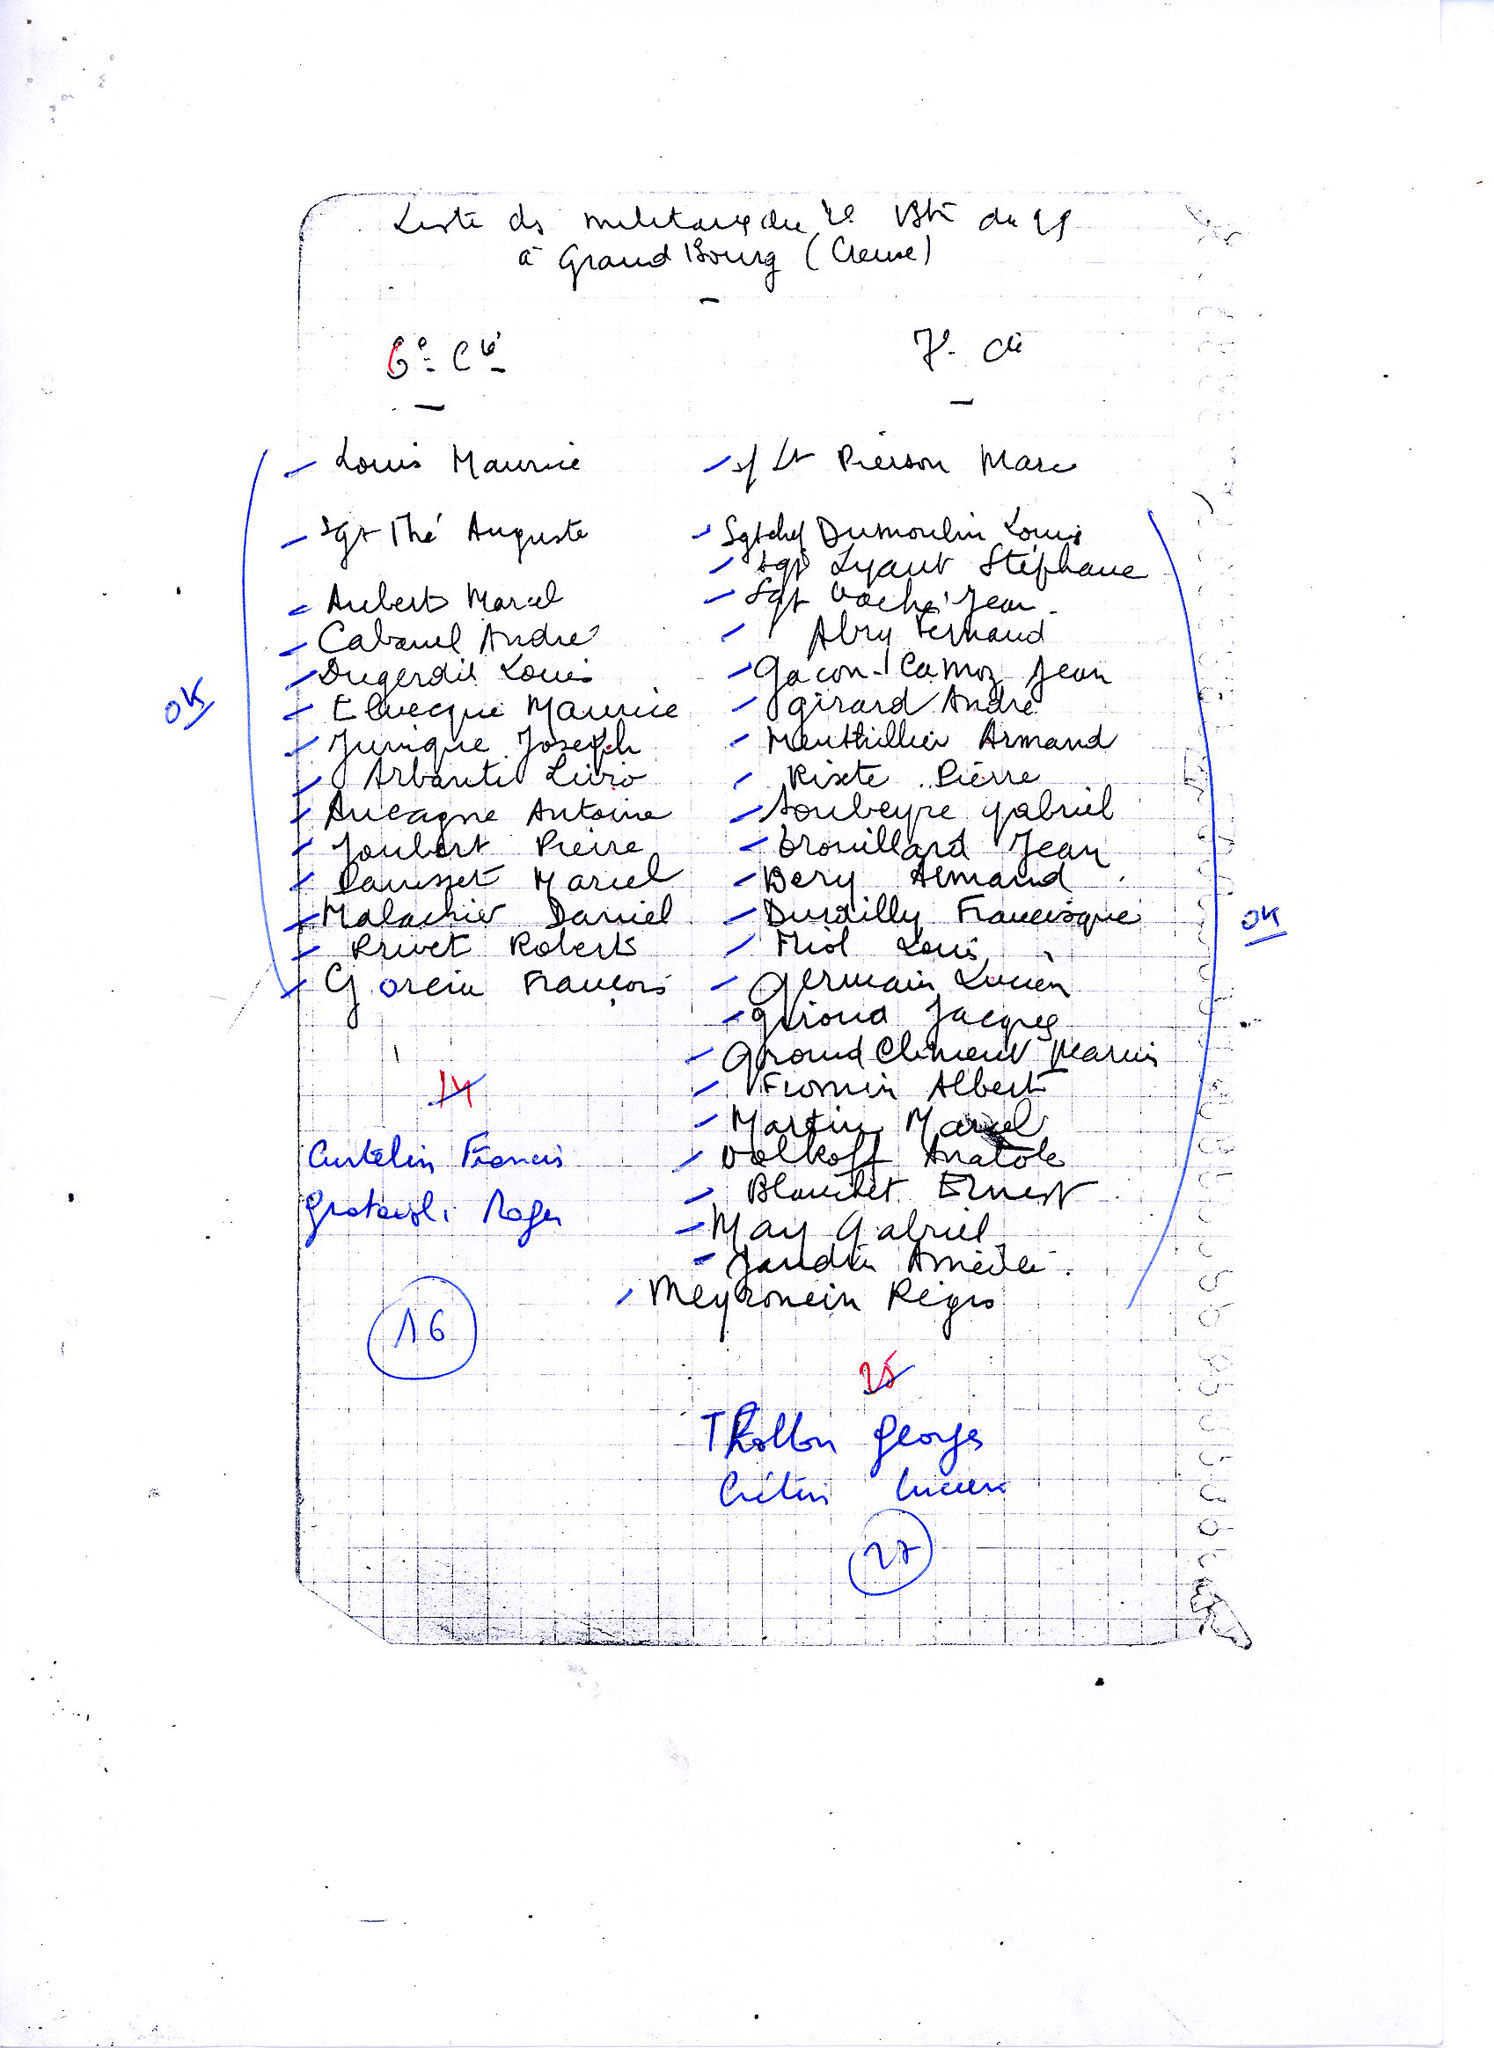 Liste ds militaires du 2e Btn du 99
à Grand Bourg (Creuse)
6e Cie
Louis Maurice
Sgt Thé Auguste
Aubert Marcel
Cabanel André
Dugerdil Louis
Elvecque Maurice
Junique Joseph
Arbanti Livio
Aucagne Antoine
Joubert Pierre
Dausset Marcel
Malachier Daniel
Privet Robert
Gorein François
14
Curtelin Francis
Roger
16
OK
7e Cie
s/Lt Pierson Marc
Sgt chef Dumoulin Louis
Sgt Lyaut Stéphane
Sgt Vaché Jean
Abry Fernand
Gacon-Camoz Jean
Girard André
Menthillier Armand
Rixte Pierre
Soubeyre Gabriel
Brouillard Jean
Bery Armand
Durdilly Francisque
Miol Louis
Germain Lucien
Giroud Jacques
Giroud Clément Marius
Fromin Albert
Martin Marcel
Volkoff Anatole
Blanchet Ernest
May Gabriel
Jandin Amédée
Meyronein Régis
25
Thollon Georges
Crétin Lucien
27
OK